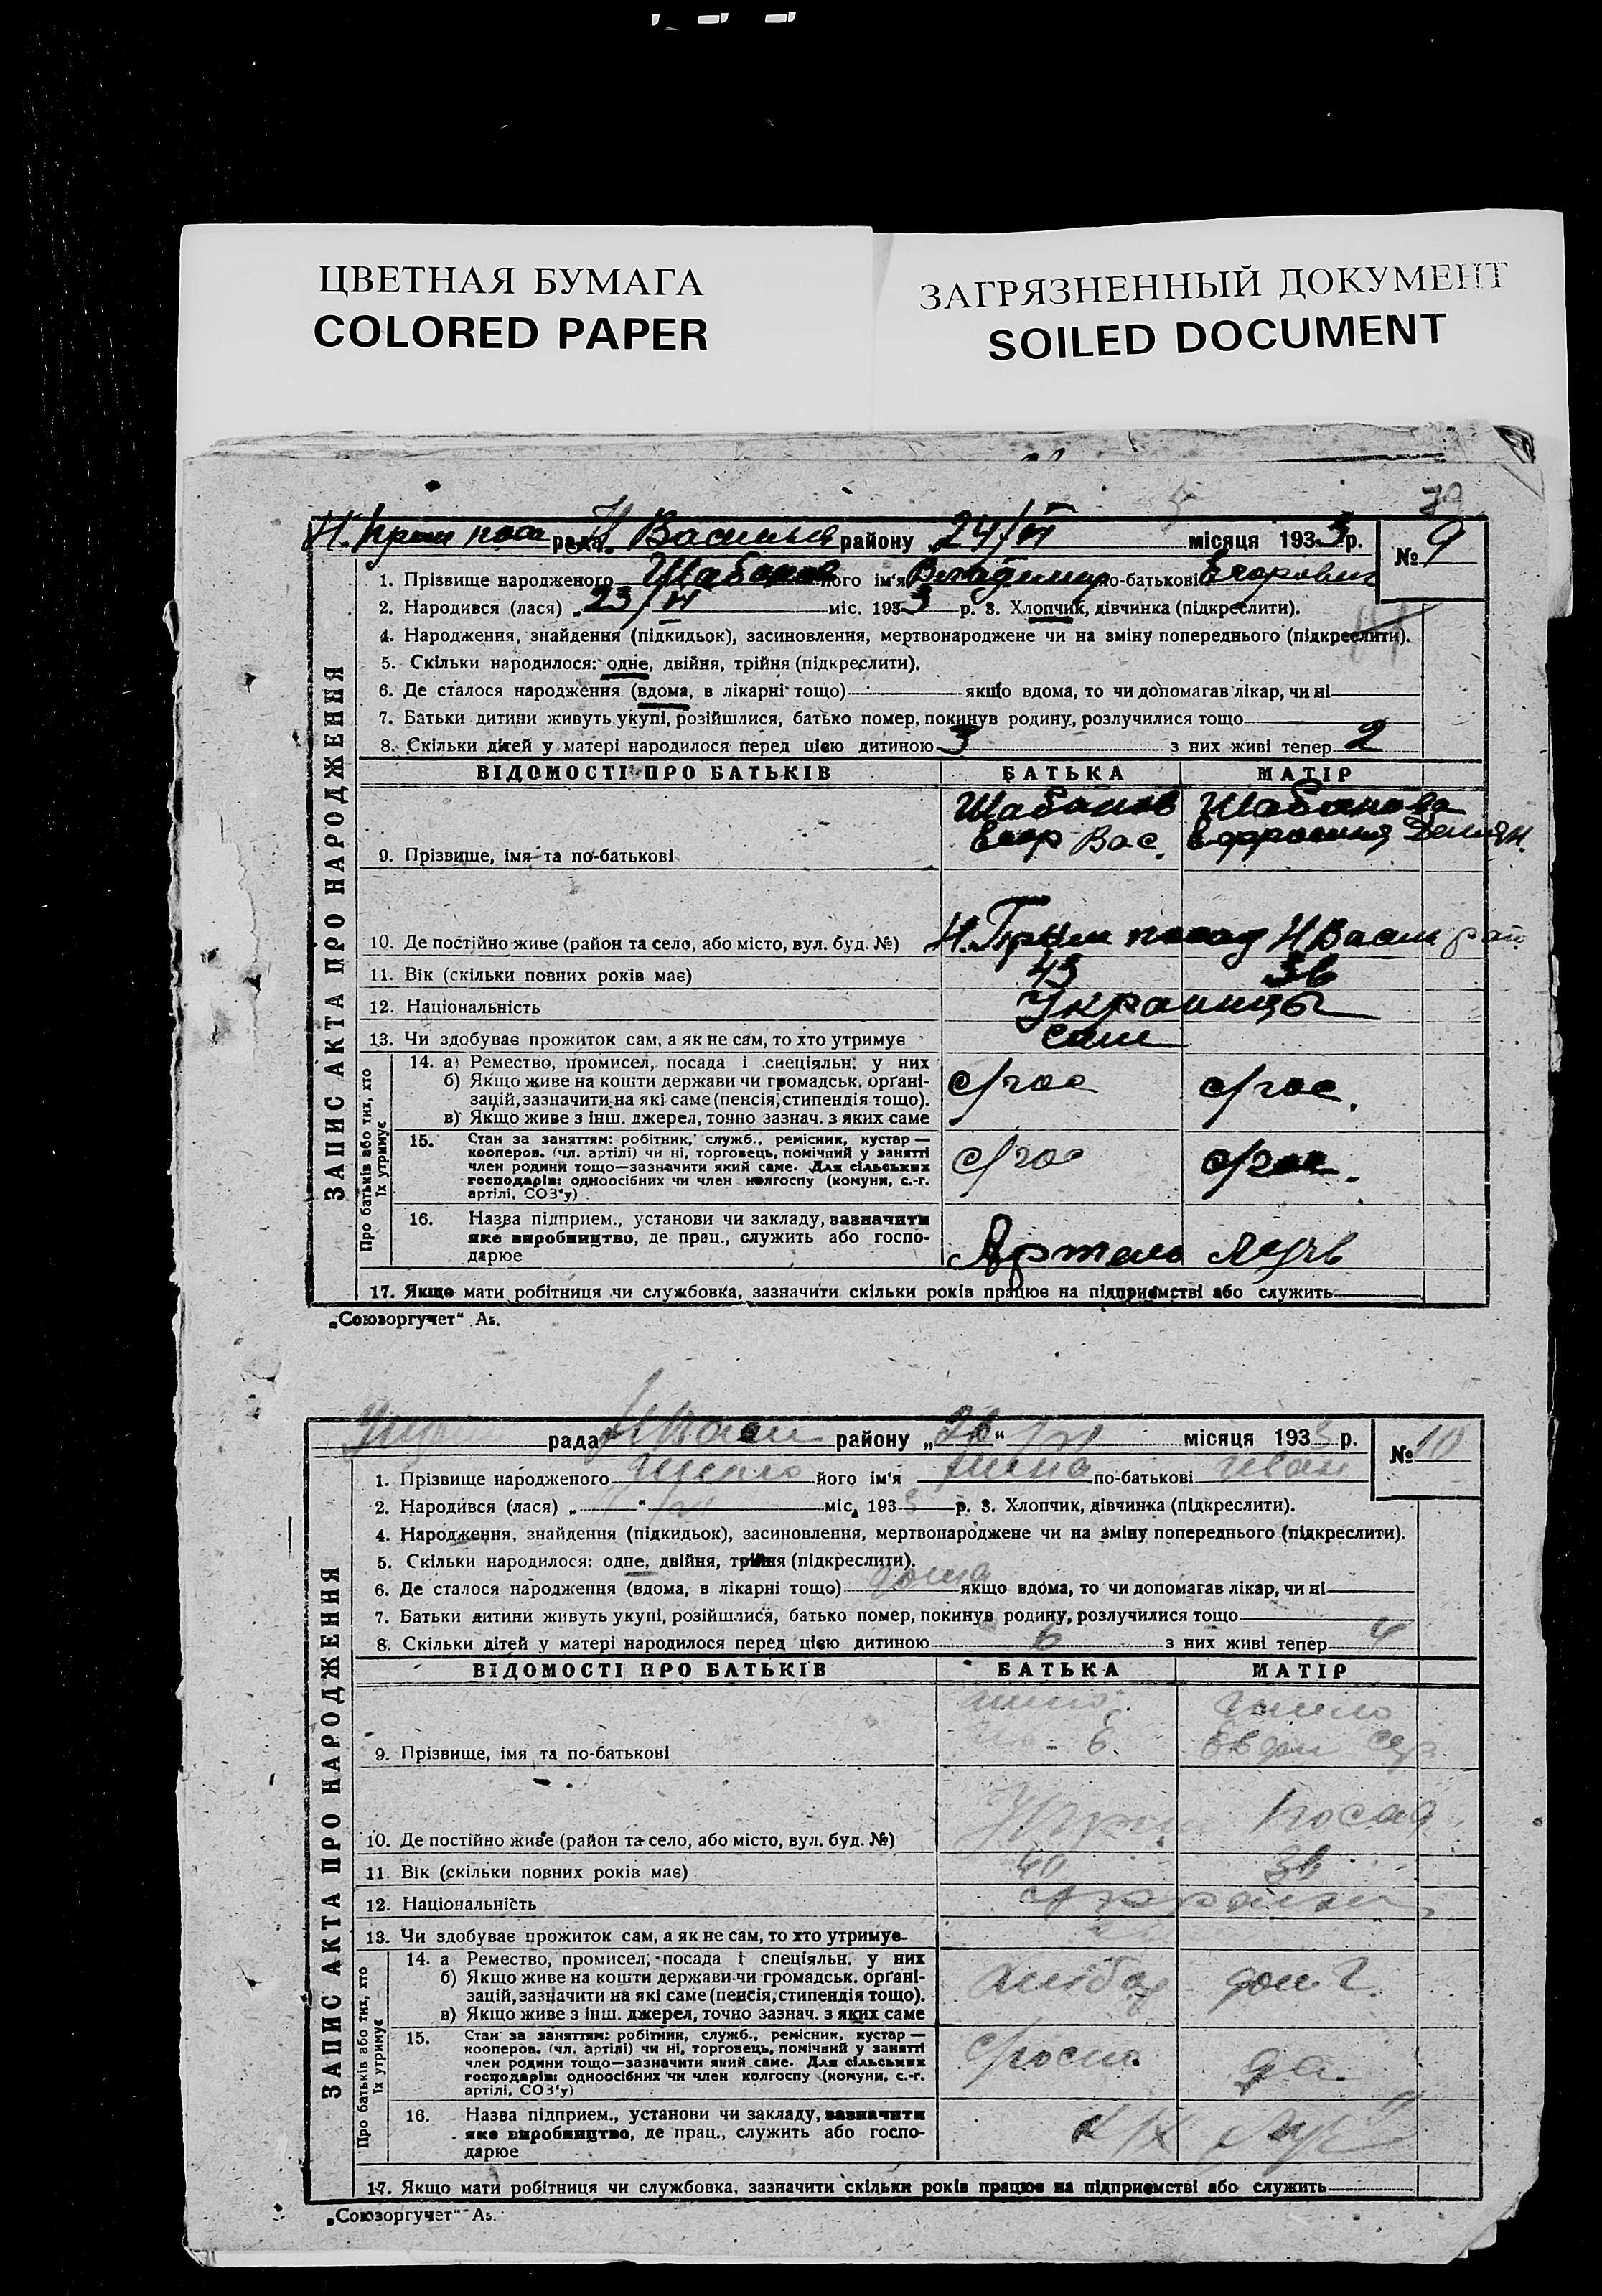 ЦВЕТНАЯ БУМАГА
COLORED PAPER
ЗАГРЯЗНЕННЫЙ ДОКУМЕНТ
SOILED DOCUMENT
рада Н Васильев району 24/VI місяця 1933 р. № 9
ЗАПИС АКТА ПРО НАРОДЖЕННЯ
1. Прізвище народженого Шабанов його ім'я Владимир по-батькові Егорович
2. Народився (лася) „ 23/VI міс. 1933 р. 3. Хлопчик, дівчинка (підкреслити).
4. Народження, знайдення (підкидьок), засиновлення, мертвонароджене чи на зміну попереднього (підкреслити).
5. Скільки народилося: одне, двійня, трійня (підкреслити).
6. Де сталося народження (вдома, в лікарні тощо) якщо вдома, то чи допомагав лікар, чи ні
7. Батьки дитини живуть укупі, розійшлися, батько помер, покинув родину, розлучилися тощо
8. Скільки дітей у матері народилося перед цією дитиною 3 з них живі тепер 2
ВІДОМОСТІ ПРО БАТЬКІВ БАТЬКА МАТІР
Шабанов Шабанова
Егор Вас. Ефросиния Демян.
9. Прізвище, імя та по-батькові
10. Де постійно живе (район та село, або місто, вул. буд. №) Н. посад Н Васил рай
11. Вік (скільки повних років має) 43 36
12. Національність Украинцы
13. Чи здобуває прожиток сам, а як не сам, то хто утримує сам
Про батьків або тих, хто їх утримує
14. а) Ремество, промисел, посада і спеціяльн. у них
б) Якщо живе на кошти держави чи громадськ. орґані-
зацій, зазначити на які саме (пенсія, стипендія тощо). с/гос с/гос.
в) Якщо живе з інш. джерел, точно зазнач. з яких саме
15. Стан за заняттям: робітник, служб., ремісник, кустар —
кооперов. (чл. артілі) чи ні, торговець, помічний у занятті
член родини тощо—зазначити який саме. Для сільських
господарів: одноосібних чи член колгоспу (комуни, с.-г.
артілі, СОЗ'у) с/гос с/гос.
16. Назва підприєм., установи чи закладу, зазначити
яке виробництво, де прац., служить або госпо-
дарює Артель Луч
17. Якщо мати робітниця чи службовка, зазначити скільки років працює на підприємстві або служить
„Союзоргучет“ А5.
рада Н Васи району „26“ VI місяця 1933 р. № 10
ЗАПИС АКТА ПРО НАРОДЖЕННЯ
1. Прізвище народженого його ім'я по-батькові Иван
2. Народився (лася) „ “ міс. 1933 р. 3. Хлопчик, дівчинка (підкреслити).
4. Народження, знайдення (підкидьок), засиновлення, мертвонароджене чи на зміну попереднього (підкреслити).
5. Скільки народилося: одне, двійня, трійня (підкреслити).
6. Де сталося народження (вдома, в лікарні тощо) дома якщо вдома, то чи допомагав лікар, чи ні
7. Батьки дитини живуть укупі, розійшлися, батько помер, покинув родину, розлучилися тощо
8. Скільки дітей у матері народилося перед цією дитиною 6 з них живі тепер 4
ВІДОМОСТІ ПРО БАТЬКІВ БАТЬКА МАТІР
9. Прізвище, імя та по-батькові
10. Де постійно живе (район та село, або місто, вул. буд. №) посад
11. Вік (скільки повних років має) 40 36
12. Національність
13. Чи здобуває прожиток сам, а як не сам, то хто утримує
Про батьків або тих, хто їх утримує
14. а Ремество, промисел, посада і спеціяльн. у них
б) Якщо живе на кошти держави чи громадськ. орґані-
зацій, зазначити на які саме (пенсія, стипендія тощо). дом. г.
в) Якщо живе з інш. джерел, точно зазнач. з яких саме
15. Стан за заняттям: робітник, служб., ремісник, кустар —
кооперов. (чл. артілі) чи ні, торговець, помічний у занятті
член родини тощо—зазначити який саме. Для сільських
господарів: одноосібних чи член колгоспу (комуни, с.-г.
артілі, СОЗ'у)
16. Назва підприєм., установи чи закладу, зазначити
яке виробництво, де прац., служить або госпо-
дарює
17. Якщо мати робітниця чи службовка, зазначити скільки років працює на підприємстві або служить
„Союзоргучет“ А5.